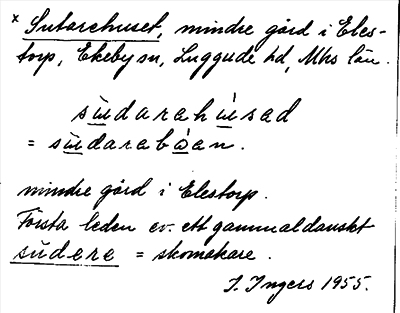 x Sutarehuset, mindre gård i Eles-
torp, Ekeby sn, Luggude hd, Mhs län.
sùdarahùsad
= sùdarabòan.
mindre gård i Elestorp.
Första leden ev. ett gammaldanskt
sudere = skomakare.
I. Ingers 1955.